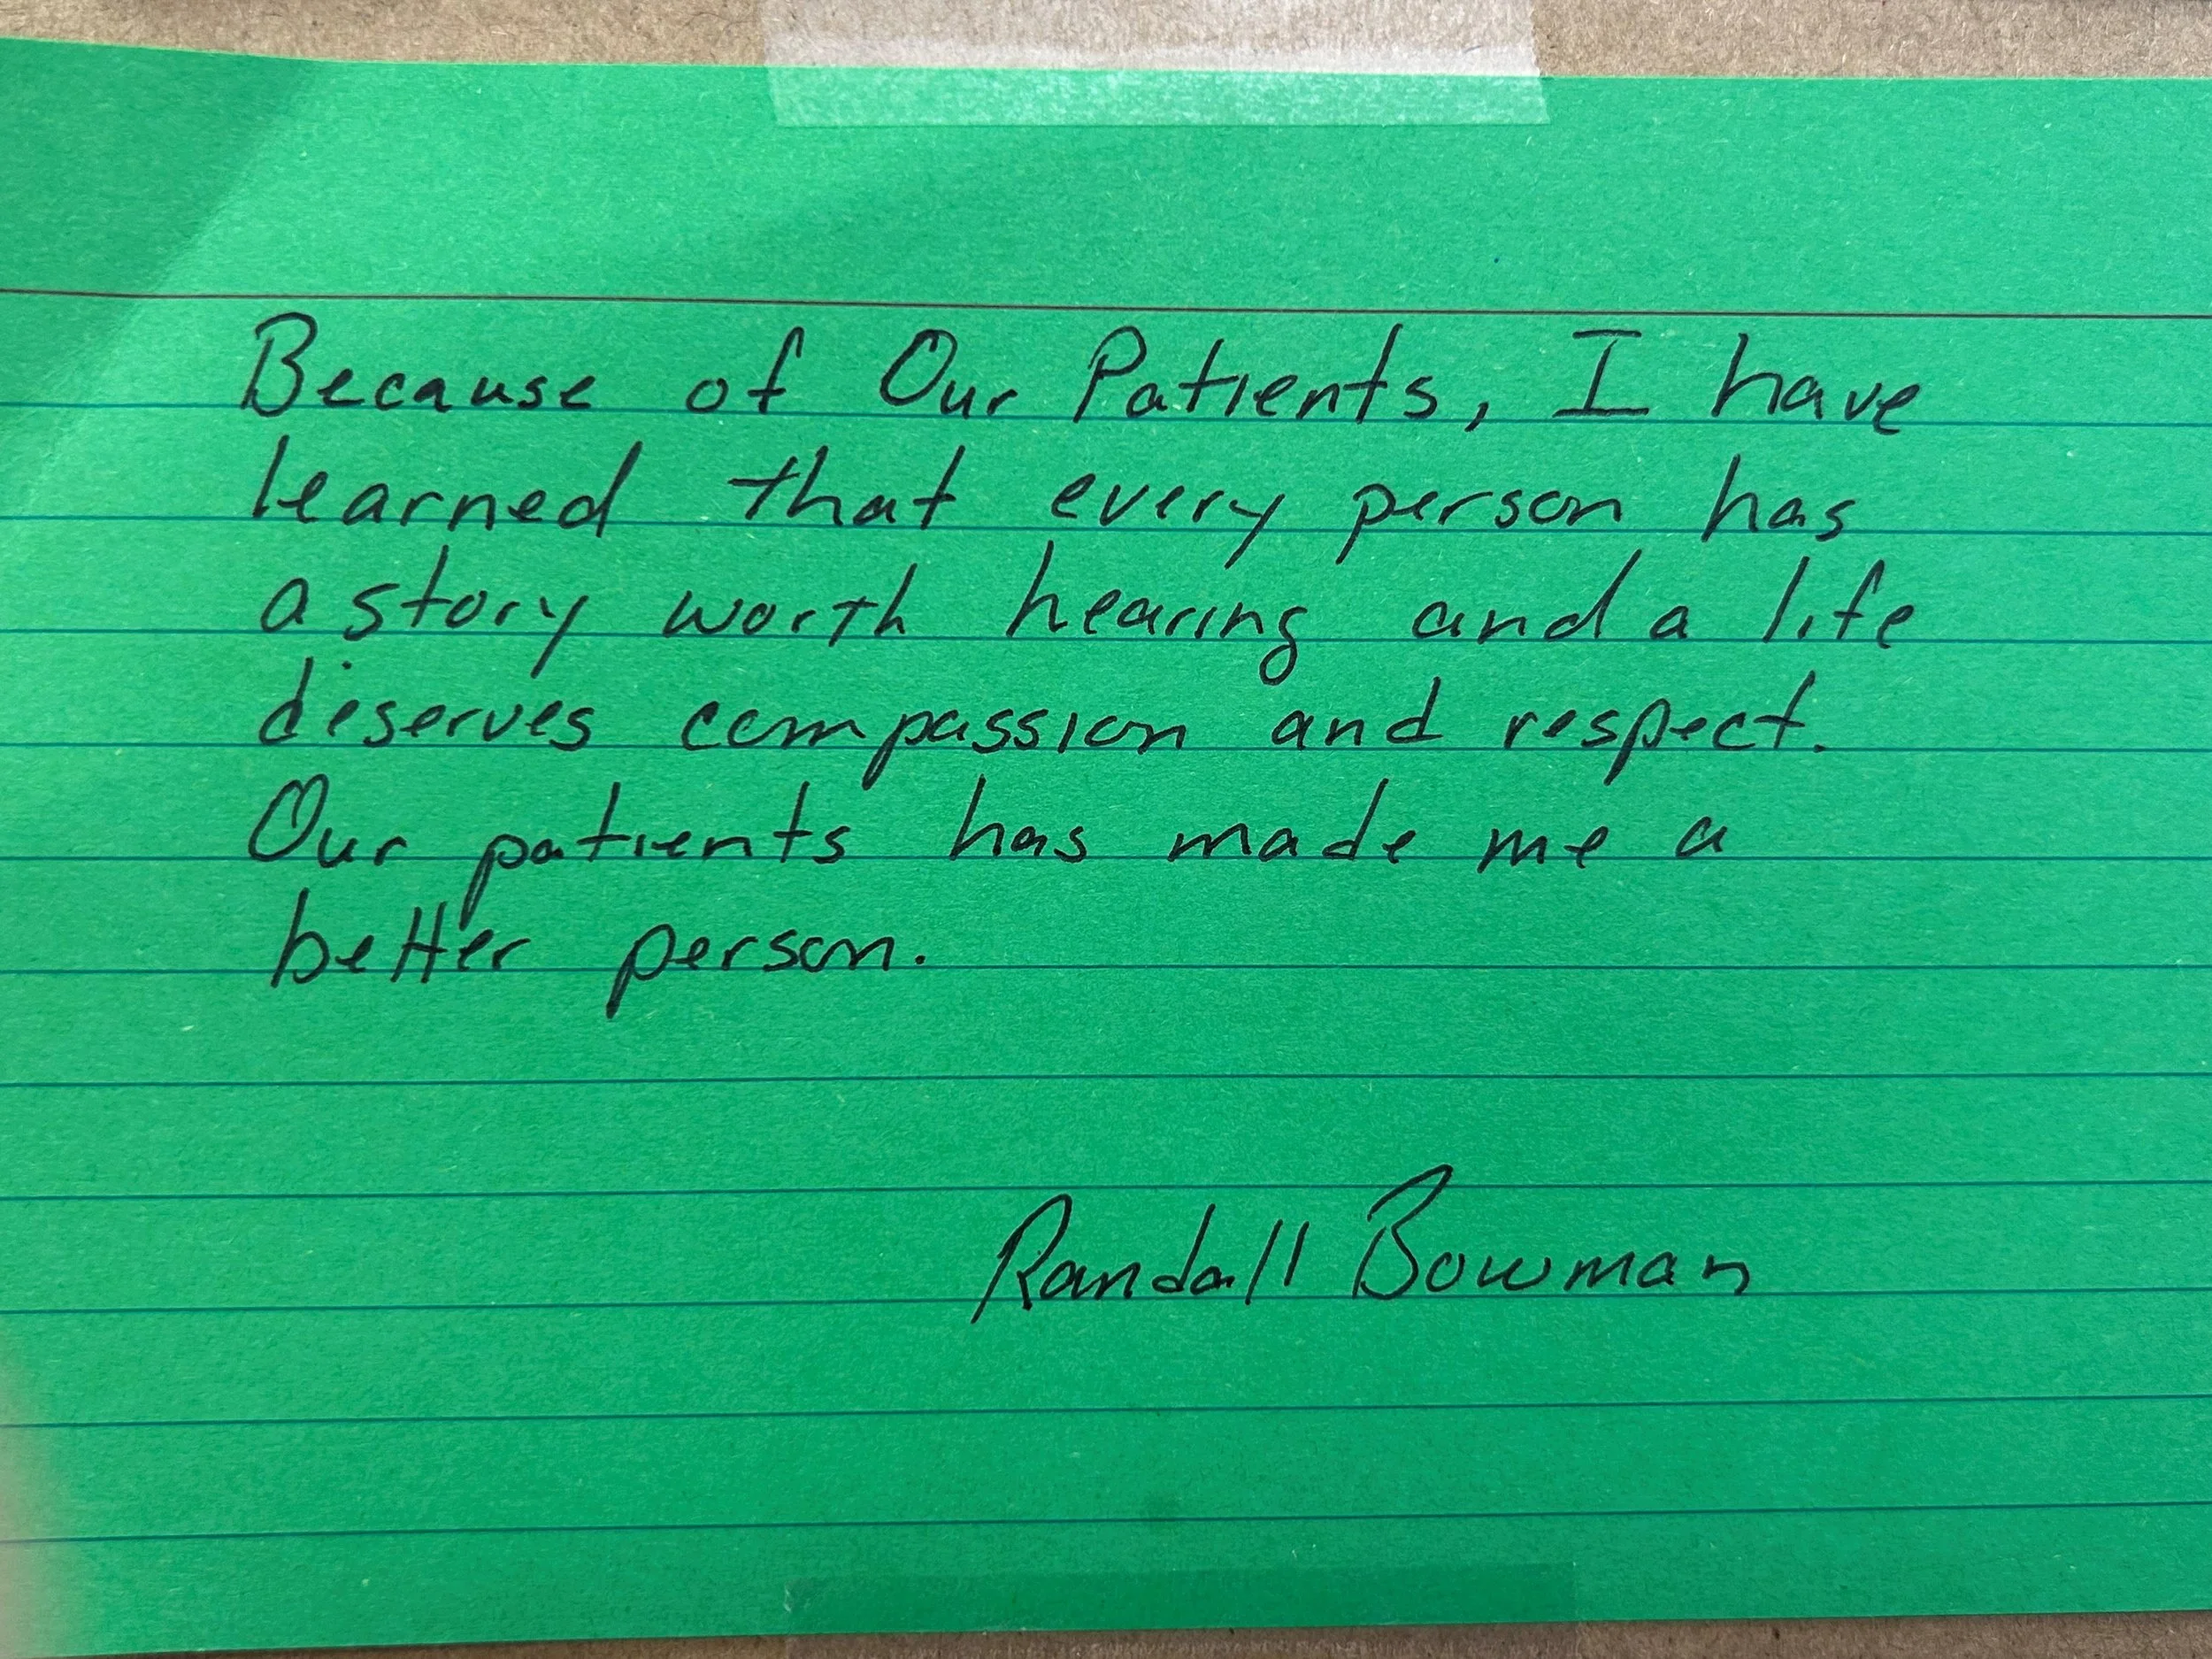 Because of Our Patients, I have
learned that every person has
a story worth hearing and a life
deserves compassion and respect.
Our patients has made me a
better person.
Randall Bowman